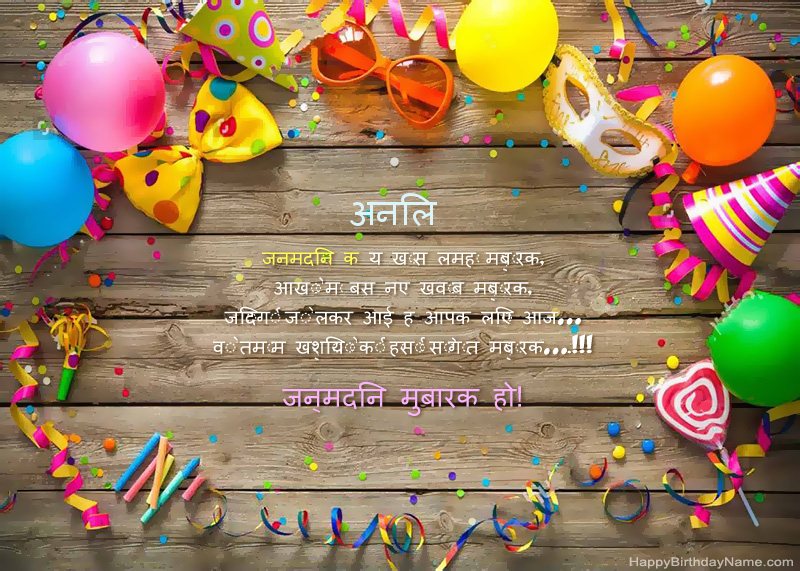 अनिल
जनमदिन क य ख़ास लमह मबारक,
आखों म बस नए ख़वाब मबारक,
जिंदगी जो लेकर आई ह आपक लिए आज...
वो तमाम ख़शियों की हसीं सौगात मबारक...!!!
जन्मदिन मुबारक हो!
HappyBirthdayName.com